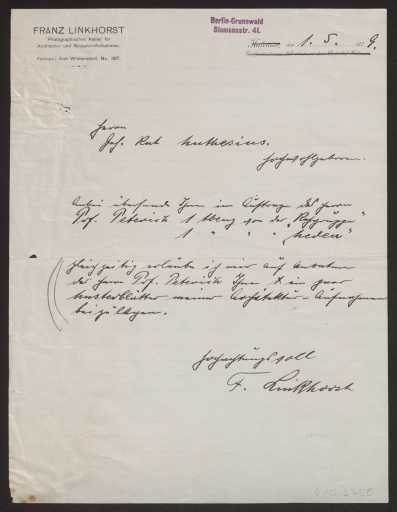 FRANZ LINKHORST
Photographisches Atelier für
Architektur- und
Fernspr.: Amt Wilmersdorf, No.
Berlin-Grunewald
Siemensstr. 41.
den 1. 5. 9.
Herrn
Geh. Rat Muthesius.
Hochwohlgeboren.
Anbei übersende Ihnen im Auftrage des Herrn
Prof. Petersen 1 Abzug von der
1 " " "
Gleichzeitig erlaube ich mir auf Anraten
des Herrn Prof. Petersen Ihnen ein paar
Musterblätter meiner Architektur-Aufnahmen
beizulegen.
Hochachtungsvoll
F. Linkhorst